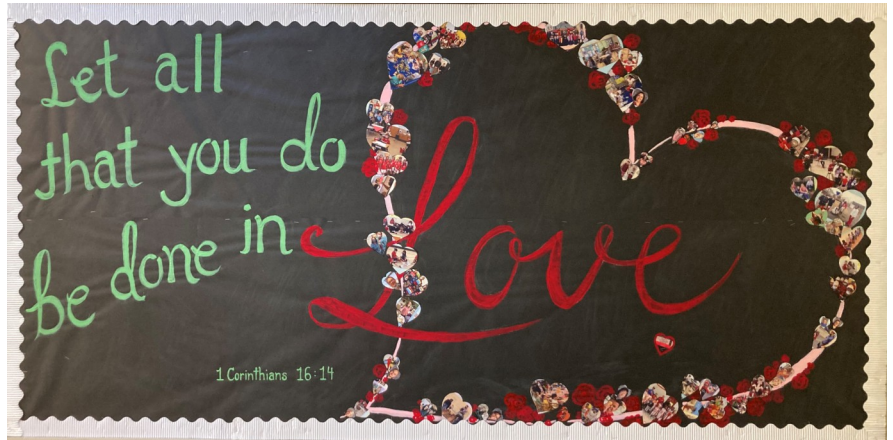 Let all
that you do
be done in
Love
1 Corinthians 16:14